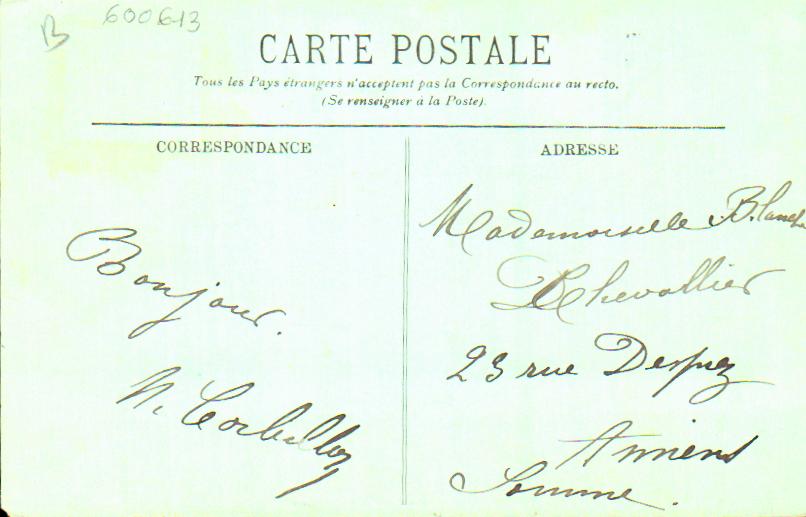 B
600613
CARTE POSTALE
Tous les Pays étrangers n'acceptent pas la Correspondance au recto.
(Se renseigner à la Poste).
CORRESPONDANCE
Bonjour.
ADRESSE
Mademoiselle Blanche
Chevallier
23 rue Desprez
Amiens
Somme.